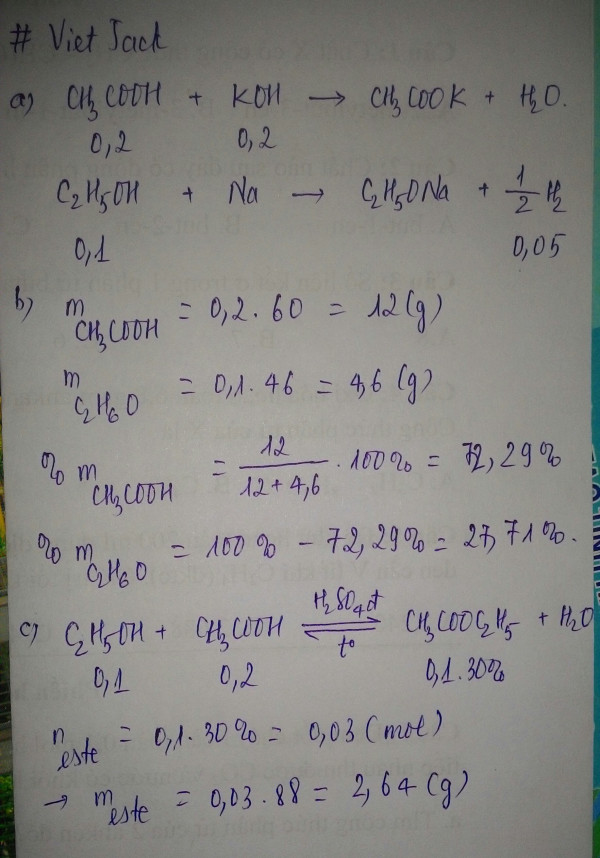 # Viet Jack
a) CH3COOH + KOH → CH3COOK + H2O.
0,2 0,2
C2H5OH + Na → C2H5ONa + 1/2 H2
0,1 0,05
b) m CH3COOH = 0,2.60 = 12(g)
m C2H6O = 0,1.46 = 4,6 (g)
% m CH3COOH = 12/(12+4,6) .100% = 72,29%
% m C2H6O = 100% - 72,29% = 27,71%.
c) C2H5OH + CH3COOH ⇌ (H2SO4 đ, t°) CH3COOC2H5 + H2O
0,1 0,2 0,1.30%
n este = 0,1.30% = 0,03 (mol)
→ m este = 0,03.88 = 2,64 (g)